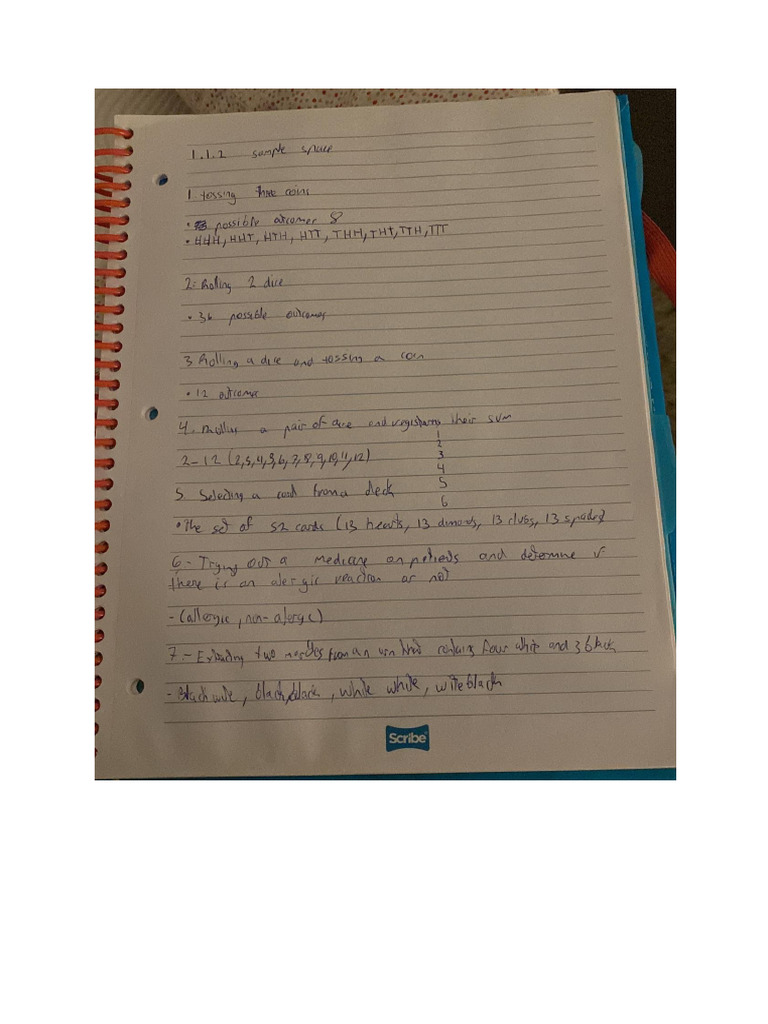 1.1.2 sample space
1. tossing three coins
• possible outcomes 8
• HHH, HHT, HTH, HTT, THH, THT, TTH, TTT
2. Rolling 2 dice
• 36 possible outcomes
3 Rolling a dice and tossing a coin
• 12 outcomes
4. Rolling a pair of dice and registering their sum
1
2
2-12 (2,3,4,5,6,7,8,9,10,11,12)
3
4
5. Selecting a card from a deck
5
6
• The set of 52 cards (13 hearts, 13 dimonds, 13 clubs, 13 spades)
6- Trying out a medicine on patients and determine if
there is an alergic reaction or not
- (allergic, non-alergic)
7.- Extracting two marbles from an urn containing four white and 3 black
- Black wite, black, black, white white, wite black
Scribe